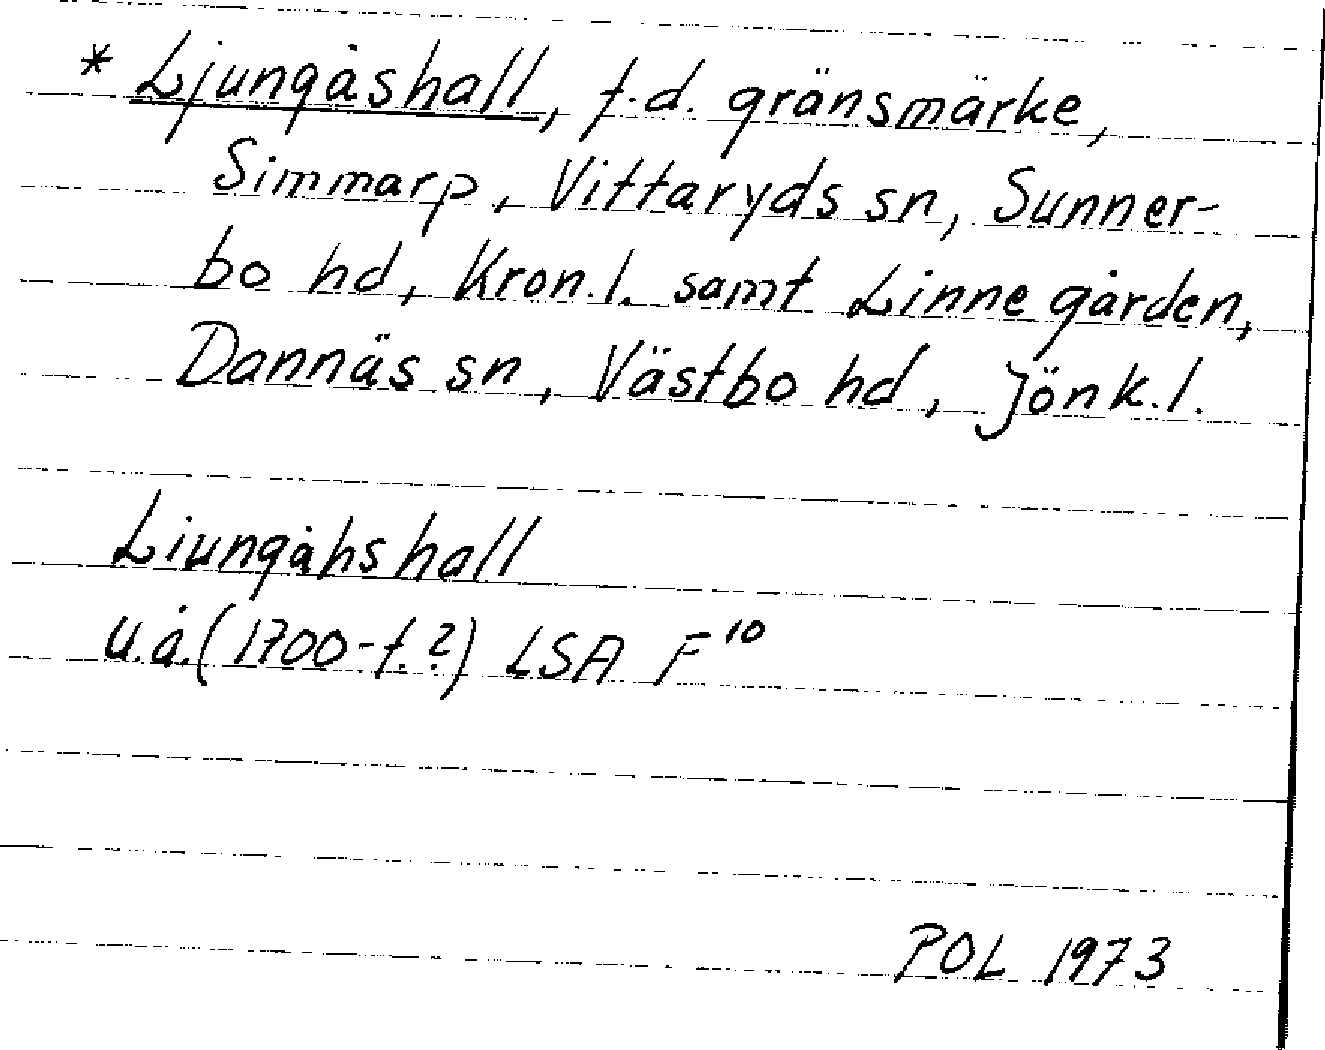 * Ljungåshall, f.d. gränsmärke,
Simmarp, Vittaryds sn, Sunner-
bo hd, Kron.l. samt Linnegården,
Dannäs sn, Västbo hd, Jönk.l.
Liungåhshall
u.å. (1700-t.?) LSA F¹⁰
POL 1973